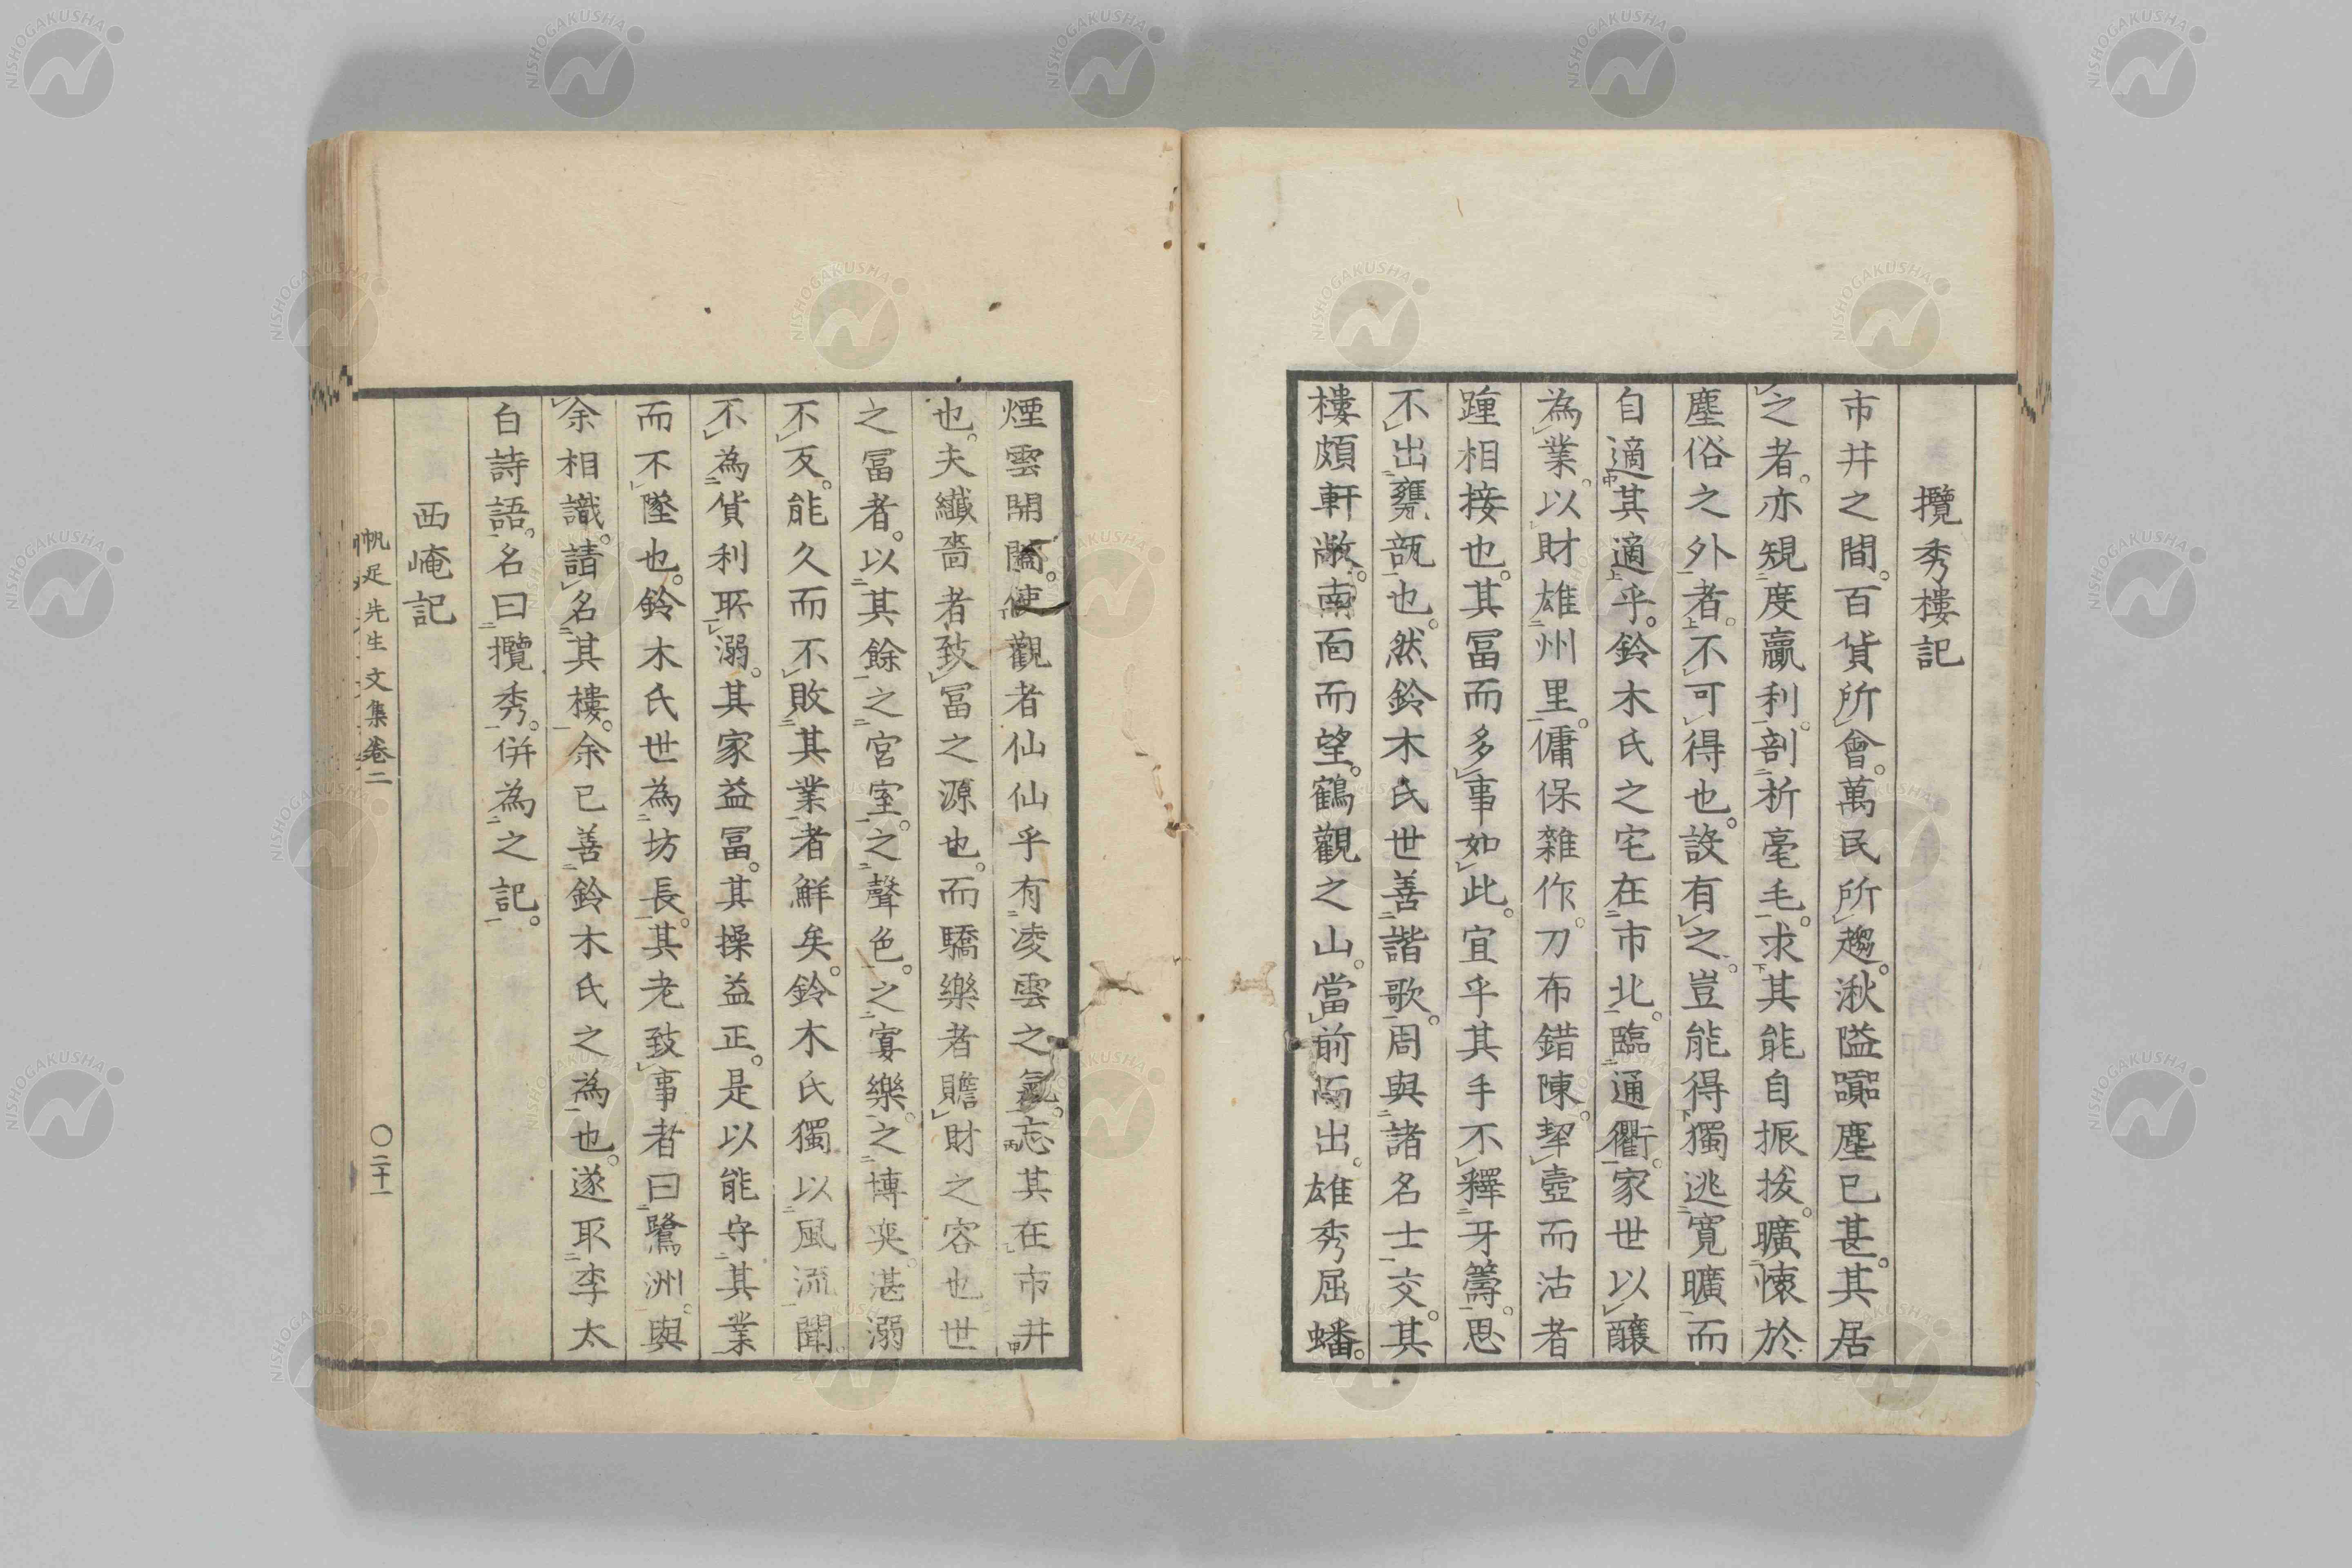 攬秀樓記
市井之間。百貨所會。萬民所趨。湫隘囂塵已甚。其居
之者。亦規度贏利。剖析毫毛。求其能自振拔。曠懷於
塵俗之外者。不可得也。設有之。豈能得獨逃寬曠而
自適其適乎。鈴木氏之宅在市北。臨通衢。家世以釀
為業。以財雄州里。傭保雜作。刀布錯陳。挈壺而沽者
踵相接也。其冨而多事如此。宜乎其手不釋牙籌。思
不出甕瓿也。然鈴木氏世善諧歌。周與諸名士交。其
樓頗軒敞。南面而望。鶴觀之山。當前而出。雄秀屈蟠。
煙雲開闔。使觀者仙仙乎有凌雲之氣。忘其在市井
也。夫纖嗇者致冨之源也。而驕樂者贍財之容也世
之冨者。以其餘之宮室。之聲色。之宴樂。之博奕。湛溺
不反。能久而不敗其業者鮮矣。鈴木氏獨以風流聞。
不為貨利所溺。其家益冨。其操益正。是以能守其業
而不墜也。鈴木氏世為坊長。其老致事者曰鷺洲。與
余相識。請名其樓。余已善鈴木氏之為也。遂取李太
白詩語。名曰攬秀。併為之記。
西崦記
帆足先生文集卷二 〇二十一
NISHOGAKUSHA